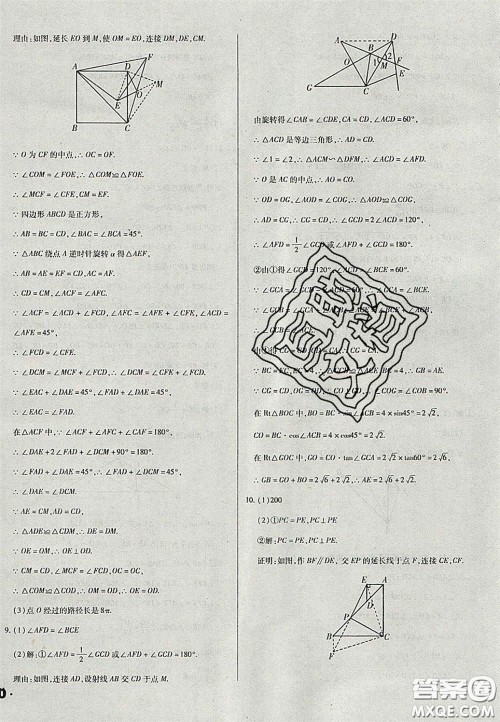 理由:如图,延长 EO 到 M,使 OM = EO,连接 DM,DE,CM.
A
D
F
O
M
E
B
C
∵ O 为 CF 的中点,∴ OC = OF.
∵ ∠COM = ∠FOE,∴ △COM≌△FOE.
∴ ∠MCF = ∠CFE,CM = EF.
∵ 四边形 ABCD 是正方形,
∴ AB = BC = DC,∠BAC = ∠BCA = 45°.
∵ △ABC 绕点 A 逆时针旋转 α 得△AEF,
∴ AB = AE = EF = CD,AC = AF.
∴ CD = CM,∠ACF = ∠AFC.
∵ ∠ACF = ∠ACD + ∠FCD,∠AFC = ∠AFE + ∠CFE,∠ACD =
∠AFE = 45°,
∴ ∠FCD = ∠CFE.
∴ ∠DCM = ∠FCD + ∠MCF = ∠FCD + ∠CFE = 2∠FCD.
∵ ∠EAC + ∠DAE = 45°,∠FAD + ∠DAE = 45°,
∴ ∠EAC = ∠FAD.
在△ACF 中,∵ ∠ACF + ∠AFC + ∠CAF = 180°,
∴ ∠DAE + 2∠FAD + ∠DCM + 90° = 180°.
∵ ∠FAD + ∠DAE = 45°,∴ ∠FAD + ∠DCM = 45°.
∴ ∠DAE = ∠DCM.
∴ △ADE≌△CDM.∴ DE = DM.
∵ OE = OM,∴ OE⊥OD.
∵ CM = CD,∠MCF = ∠DCF,∴ OM = OD.
∴ OE = OD.
(3)点 O 经过的路径长是 8π.
9. (1)∠AFD = ∠BCE
(2)解:①∠AFD = 1/2 ∠GCD 或∠AFD + ∠GCD = 180°.
理由:如图,连接 AD,设射线 AB 交 CD 于点 M.
A
D
B
O
1
2
M
E
G
C
F
由旋转得∠CAB = ∠CDE,CA = CD,∠ACD = 60°,
∴ △ACD 是等边三角形,∴ AD = CD.
∵ ∠1 = ∠2,∴ △ACM∽△DFM,∴ ∠ACD = ∠AFD.
∵ O 是 AC 的中点,∴ AO = CO.
∵ OD = OG,∠AOD = ∠COG,∴ △AOD≌△COG.
∴ AD = CG,∴ CG = CD,∴ ∠GCD = 2∠ACD = 120°.
∴ ∠AFD = 1/2 ∠GCD 或∠AFD + ∠GCD = 180°.
②由①得∠GCD = 120°,∠ACD = ∠BCE = 60°.
在 Rt△BOC 中,BO = BC·sin∠GCA = 4 × sin45° = 2√2,
CO = BC·cos∠GCA = 4 × cos45° = 2√2.
在 Rt△GOC 中,GO = CO·tan∠GCA = 2√2 × tan60° = 2√6,
∴ GB = GO - BO = 2√6 - 2√2 或 GB = GO + BO = 2√6 + 2√2.
10. (1)200
(2)①PC = PE,PC⊥PE
②解:PC = PE,PC⊥PE.
证明:如图,作 BF∥DE,交 EP 的延长线于点 F,连接 CE,CF.
E
A
D
P
B
C
F
答案圈
MXQE.COM